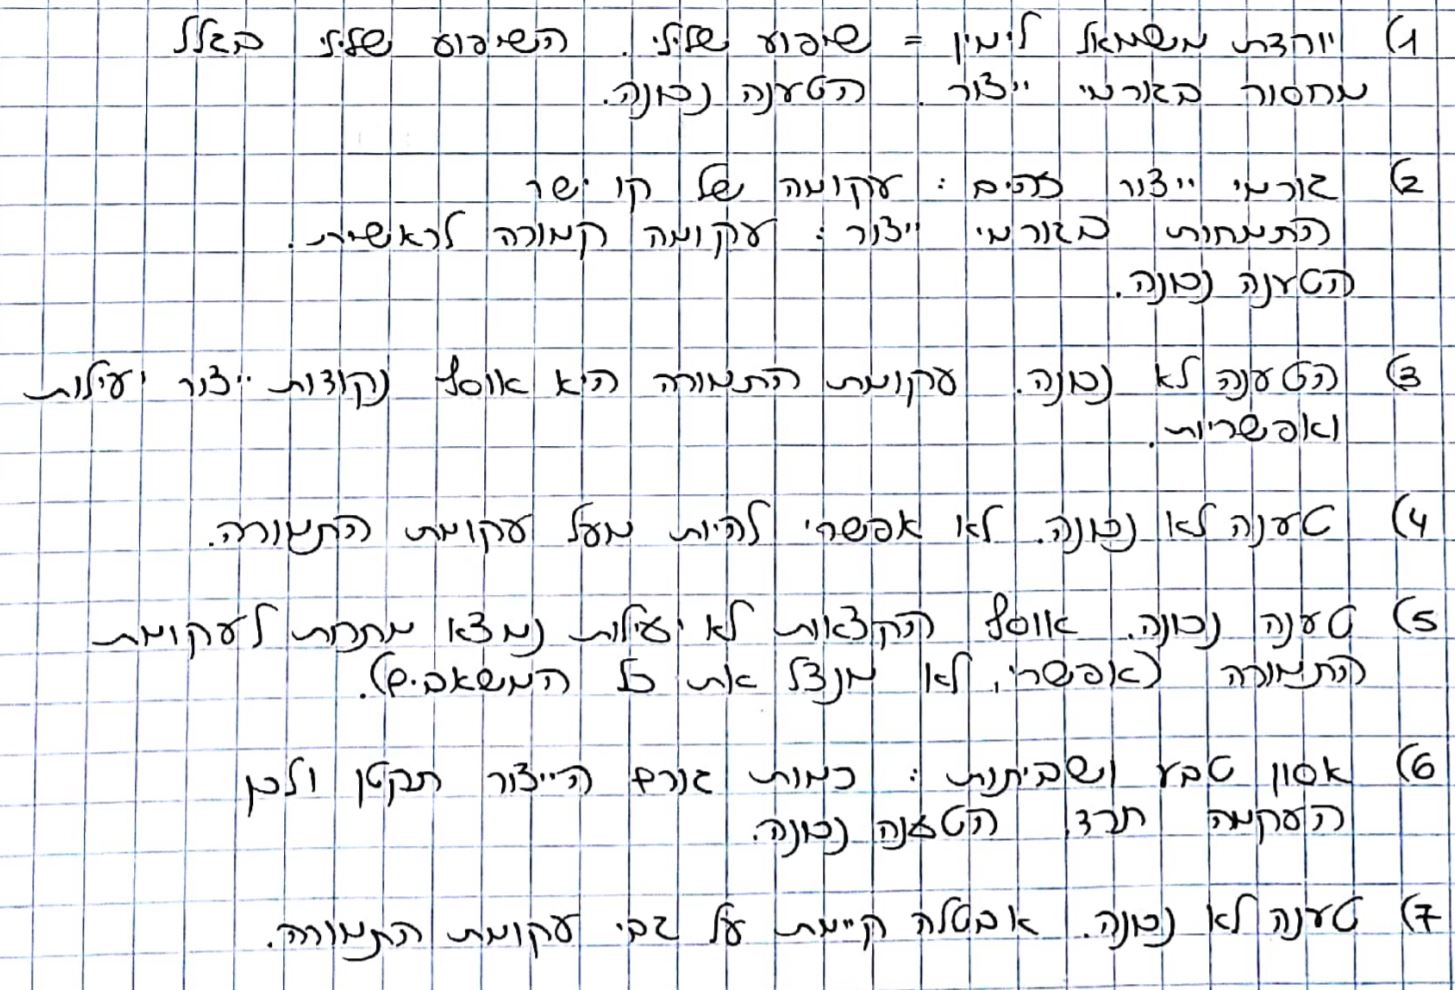 1) יורדת משמאל לימין = שיפוע שלילי. השיפוע שלילי בגלל
מחסור בגורמי ייצור. הטענה נכונה.
2) גורמי ייצור זהים : עקומה של קו ישר
התמחות בגורמי ייצור : עקומה קמורה לראשית.
הטענה נכונה.
3) הטענה לא נכונה. עקומת התמורה היא אוסף נקודות ייצור יעילות
ואפשריות.
4) טענה לא נכונה. לא אפשרי להיות מעל עקומת התמורה.
5) טענה נכונה. אוסף הקצאות לא יעילות נמצא מתחת לעקומת
התמורה (אפשרי, לא מנצל את כל המשאבים).
6) אסון טבע ושביתות : כמות גורם הייצור תקטן ולכן
העקמה תרד. הטענה נכונה.
7) טענה לא נכונה. אבטלה קיימת על גבי עקומת התמורה.